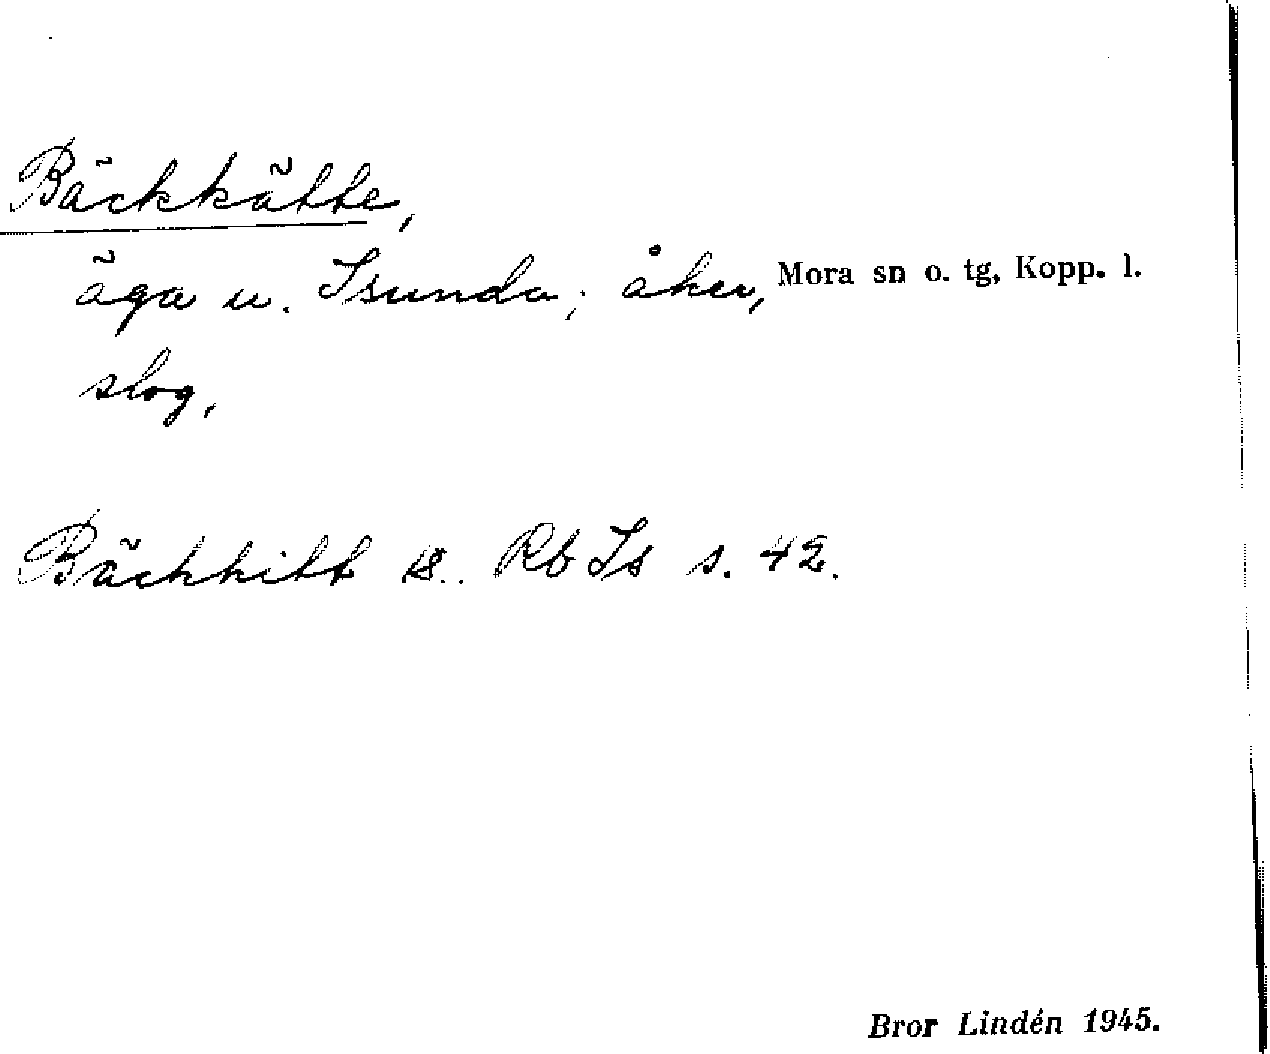 Bäckkätte,
äga u. Isunda; åker, Mora sn o. tg, Kopp. l.
slog,
Bäckkitt Rb Is s. 42.
Bror Lindén 1945.